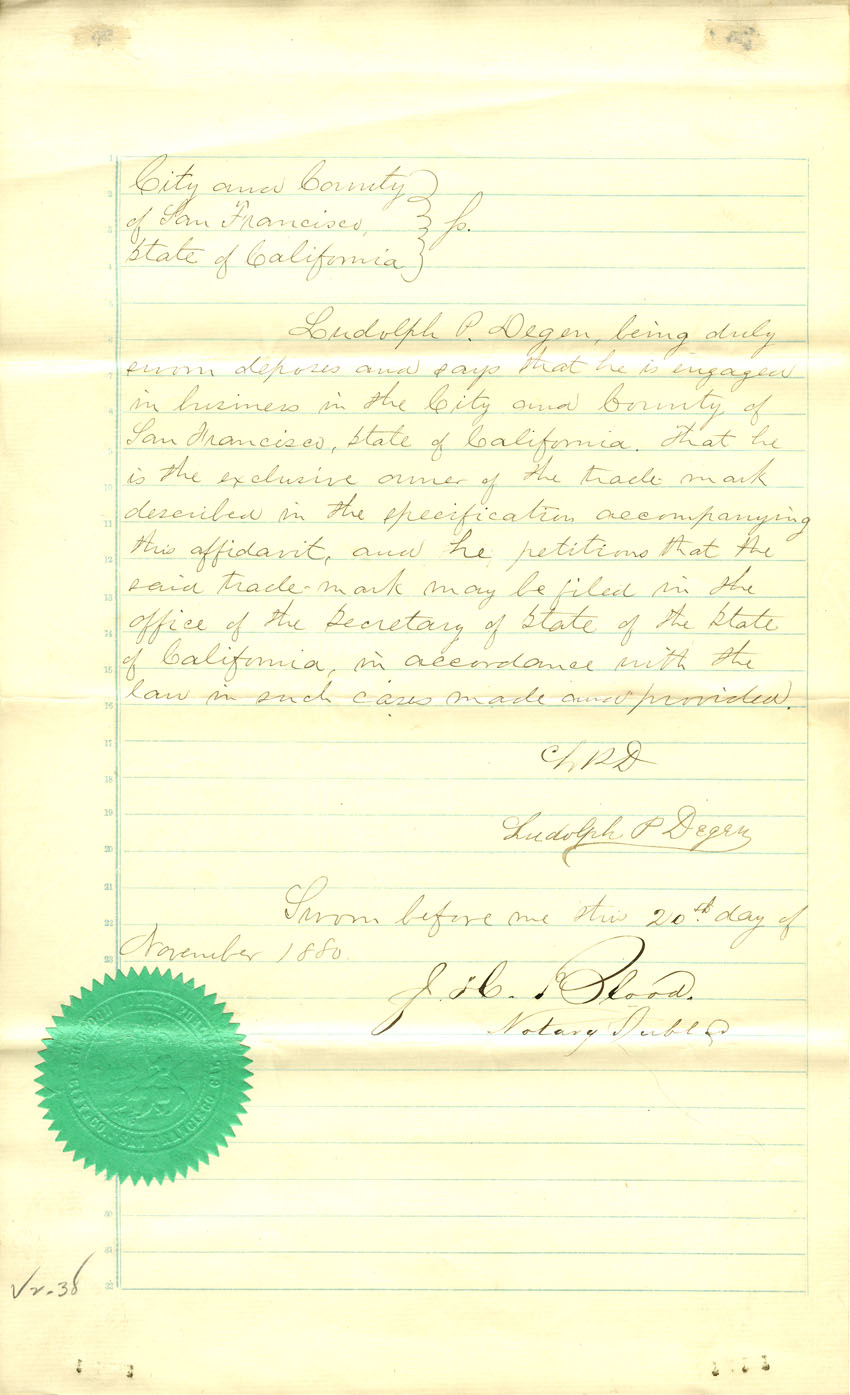 City and County
of San Francisco, ss.
State of California
Ludolph P. Degen, being duly
sworn deposes and says that he is engaged
in business in the City and County of
San Francisco, State of California. That he
is the exclusive owner of the trade mark
described in the specification accompanying
this affidavit, and he petitions that the
said trade-mark may be filed in the
office of the Secretary of State of the State
of California, in accordance with the
law in such cases made and provided.
Ludolph P Degen
Sworn before me this 20th day of
November 1880.
J. H. Blood.
Notary Public
SAN FRANCISCO CAL.